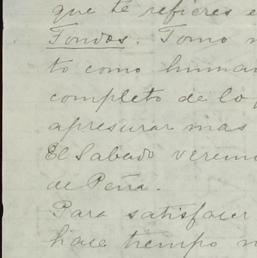 que te refieres e
Fondos. Tomo m
to como human
completo de lo p
apresurar mas
El Sabado verem
de Peña.
Para satisfacer
hace tiempo n